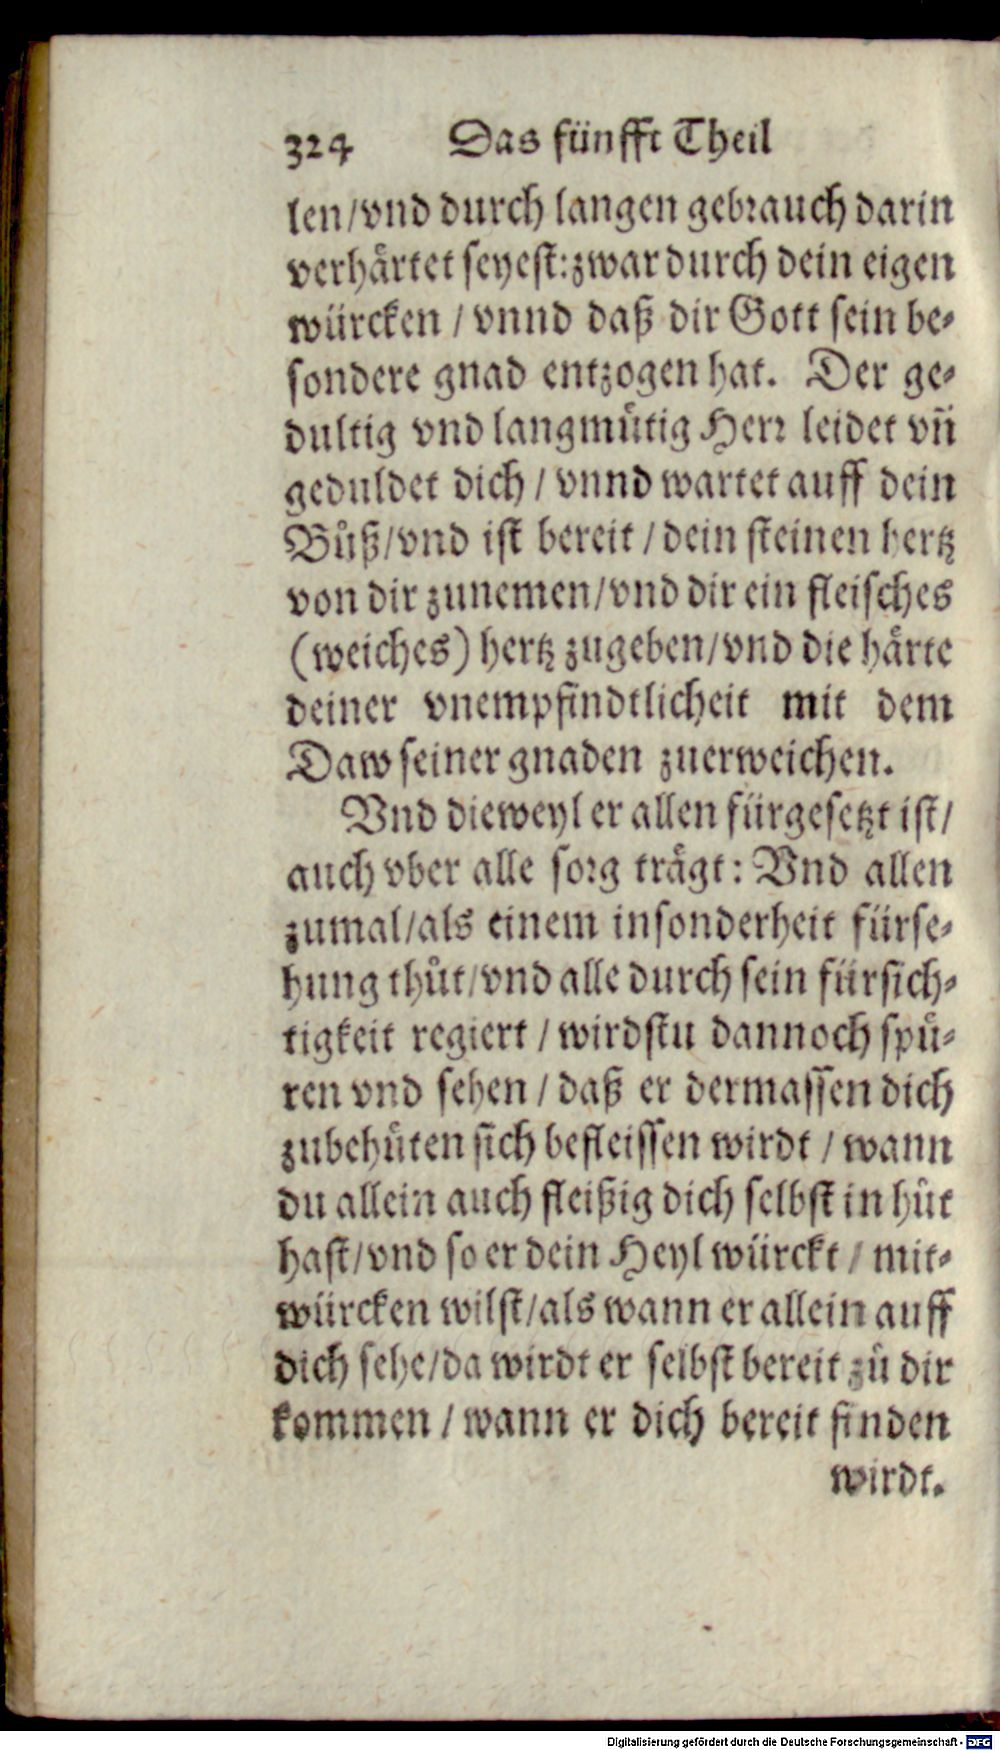 324 Das fünfft Theil
len/vnd durch langen gebrauch darin
verhärtet seyest: zwar durch dein eigen
würcken / vnnd daß dir Gott sein be-
sondere gnad entzogen hat. Der ge-
dultig vnd langmütig Herr leidet vñ
geduldet dich / vnnd wartet auff dein
Bůß/vnd ist bereit / dein steinen hertz
von dir zunemen/vnd dir ein fleisches
(weiches) hertz zugeben/vnd die härte
deiner vnempfindtlicheit mit dem
Daw seiner gnaden zuerweichen.
Vnd dieweyl er allen fürgesetzt ist/
auch vber alle sorg trägt: Vnd allen
zumal/als einem insonderheit fürse-
hung thůt/vnd alle durch sein fürsich-
tigkeit regiert / wirdstu dannoch spü-
ren vnd sehen / daß er dermassen dich
zubehüten sich befleissen wirdt / wann
du allein auch fleißig dich selbst in hůt
hast/vnd so er dein Heyl würckt / mit-
würcken wilst/als wann er allein auff
dich sehe/da wirdt er selbst bereit zů dir
kommen / wann er dich bereit finden
wirdt.
Digitalisierung gefördert durch die Deutsche Forschungsgemeinschaft - DFG